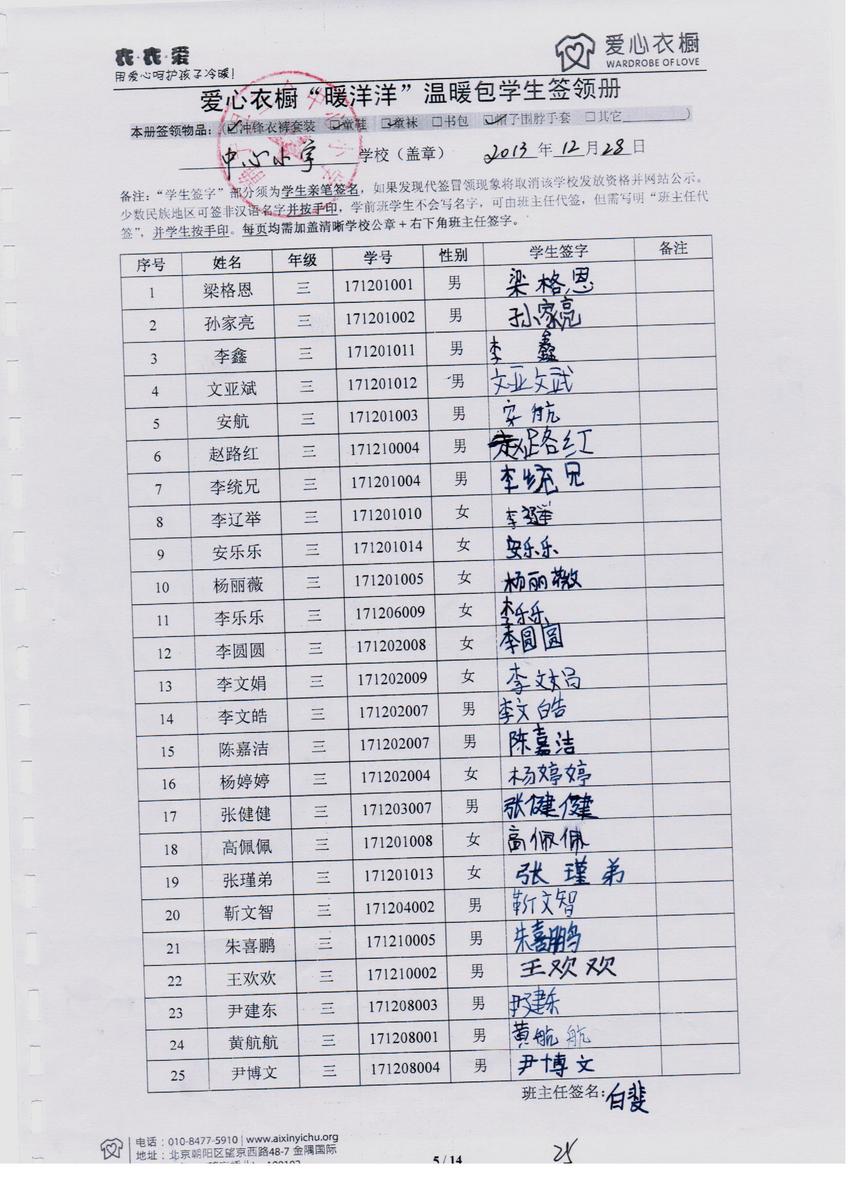 衣·衣·爱
用爱心呵护孩子冷暖!
爱心衣橱
WARDROBE OF LOVE
爱心衣橱“暖洋洋”温暖包学生签领册
本册签领物品:(☑冲锋衣裤套装 ☑童鞋 ☑童袜 □书包 ☑帽子围脖手套 □其它________)
中心小学 学校(盖章) 2013 年 12 月 28 日
备注:“学生签字”部分须为学生亲笔签名,如果发现代签冒领现象将取消该学校发放资格并网站公示。
少数民族地区可签非汉语名字并按手印,学前班学生不会写名字,可由班主任代签,但需写明“班主任代
签”,并学生按手印。每页均需加盖清晰学校公章+右下角班主任签字。
序号 姓名 年级 学号 性别 学生签字 备注
1 梁格恩 三 171201001 男 梁格恩
2 孙家亮 三 171201002 男 孙家亮
3 李鑫 三 171201011 男 李鑫
4 文亚斌 三 171201012 男 文亚文武
5 安航 三 171201003 男 安航
6 赵路红 三 171210004 男 赵路红
7 李统兄 三 171201004 男 李统兄
8 李辽举 三 171201010 女 李
9 安乐乐 三 171201014 女 安乐乐
10 杨丽薇 三 171201005 女 杨丽薇
11 李乐乐 三 171206009 女 李乐乐
12 李圆圆 三 171202008 女 李圆圆
13 李文娟 三 171202009 女 李文娟
14 李文皓 三 171202007 男 李文皓
15 陈嘉洁 三 171202007 男 陈嘉洁
16 杨婷婷 三 171202004 女 杨婷婷
17 张健健 三 171203007 男 张健健
18 高佩佩 三 171201008 女 高佩佩
19 张瑾弟 三 171201013 女 张瑾弟
20 靳文智 三 171204002 男 靳文智
21 朱喜鹏 三 171210005 男 朱喜鹏
22 王欢欢 三 171210002 男 王欢欢
23 尹建东 三 171208003 男 尹建东
24 黄航航 三 171208001 男 黄航航
25 尹博文 三 171208004 男 尹博文
班主任签名:白斐
电话:010-8477-5910 | www.aixinyichu.org
地址:北京朝阳区望京西路48-7 金隅国际
5 / 14
25